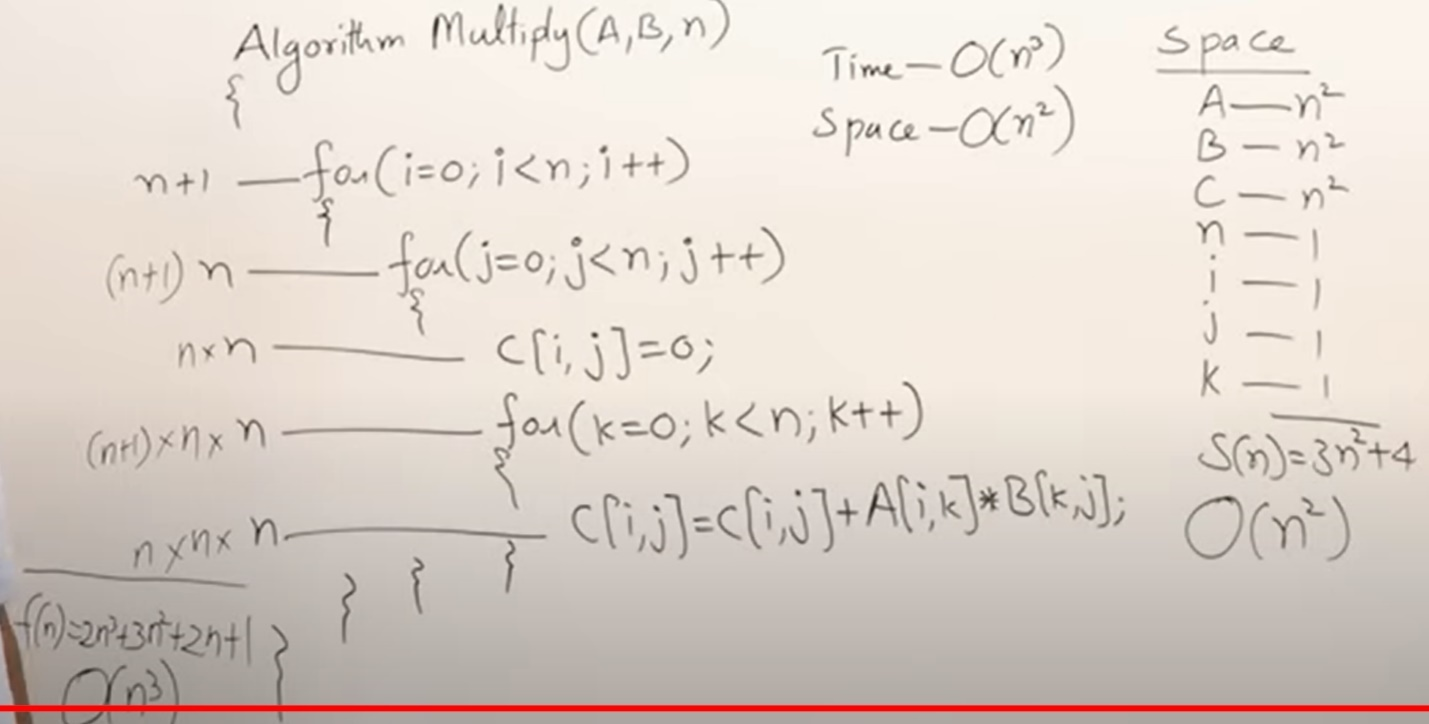 Algorithm Multiply(A,B,n)
{
n+1 — for(i=0; i<n; i++)
{
(n+1) n — for(j=0; j<n; j++)
{
n×n — C[i,j]=0;
(n+1)×n×n — for(k=0; k<n; k++)
{
n×n×n — C[i,j]=C[i,j]+A[i,k]*B[k,j];
} } }
f(n)=2n³+3n²+2n+1 }
O(n³)
Time – O(n³)
Space – O(n²)
Space
A — n²
B — n²
C — n²
n — 1
i — 1
j — 1
k — 1
S(n)=3n²+4
O(n²)